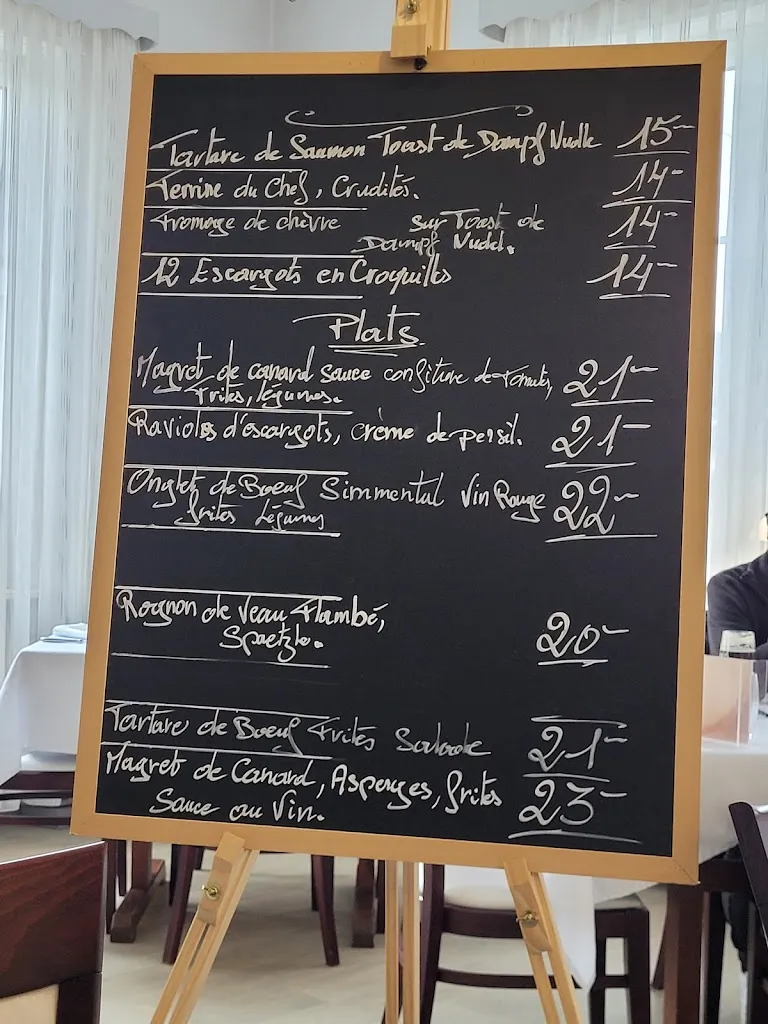 Tartare de Saumon Toast de Dampf Nudle 15-
Terrine du Chef, Crudités. 14-
Fromage de chèvre sur Toast de 14-
Dampf Nudel.
12 Escargots en Croquilles 14-
Plats
Magret de canard sauce confiture de tomates, 21-
Frites, légumes.
Ravioles d'escargots, crème de persil. 21-
Onglet de Boeuf Simmental Vin Rouge 22-
frites légumes
Rognon de Veau Flambé,
Spaetzle. 20-
Tartare de Boeuf Frites Salade 21-
Magret de Canard, Asperges, frites 23-
Sauce au Vin.